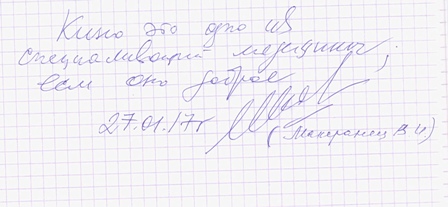 Кино это одно из
специализаций медицины,
если оно доброе
27.01.17г
(Макеранец В И)